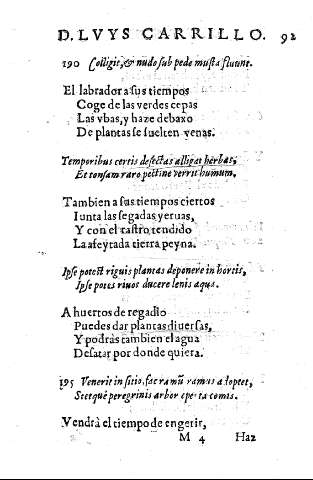 D. LVYS CARRILLO. 92
190 Colligit, & nudo sub pede musta fluunt.
El labrador a sus tiempos
Coge de las verdes cepas
Las vbas, y haze debaxo
De plantas se suelten venas.
Temporibus certis desectas alligat herbas,
Et tonsam raro pectine verrit humum.
Tambien a sus tiempos ciertos
Iunta las segadas yeruas,
Y con el rastro tendido
La afeytada tierra peyna.
Ipse potest riguis plantas deponere in hortis,
Ipse potes riuos ducere lenis aquæ.
A huertos de regadio
Puedes dar plantas diuersas,
Y podràs tambien el agua
Desatar por donde quiera.
195 Venerit insitio, fac ramū ramus adoptet,
Stetquè peregrinis arbor operta comis.
Vendrà el tiempo de engerir,
M 4 Haz